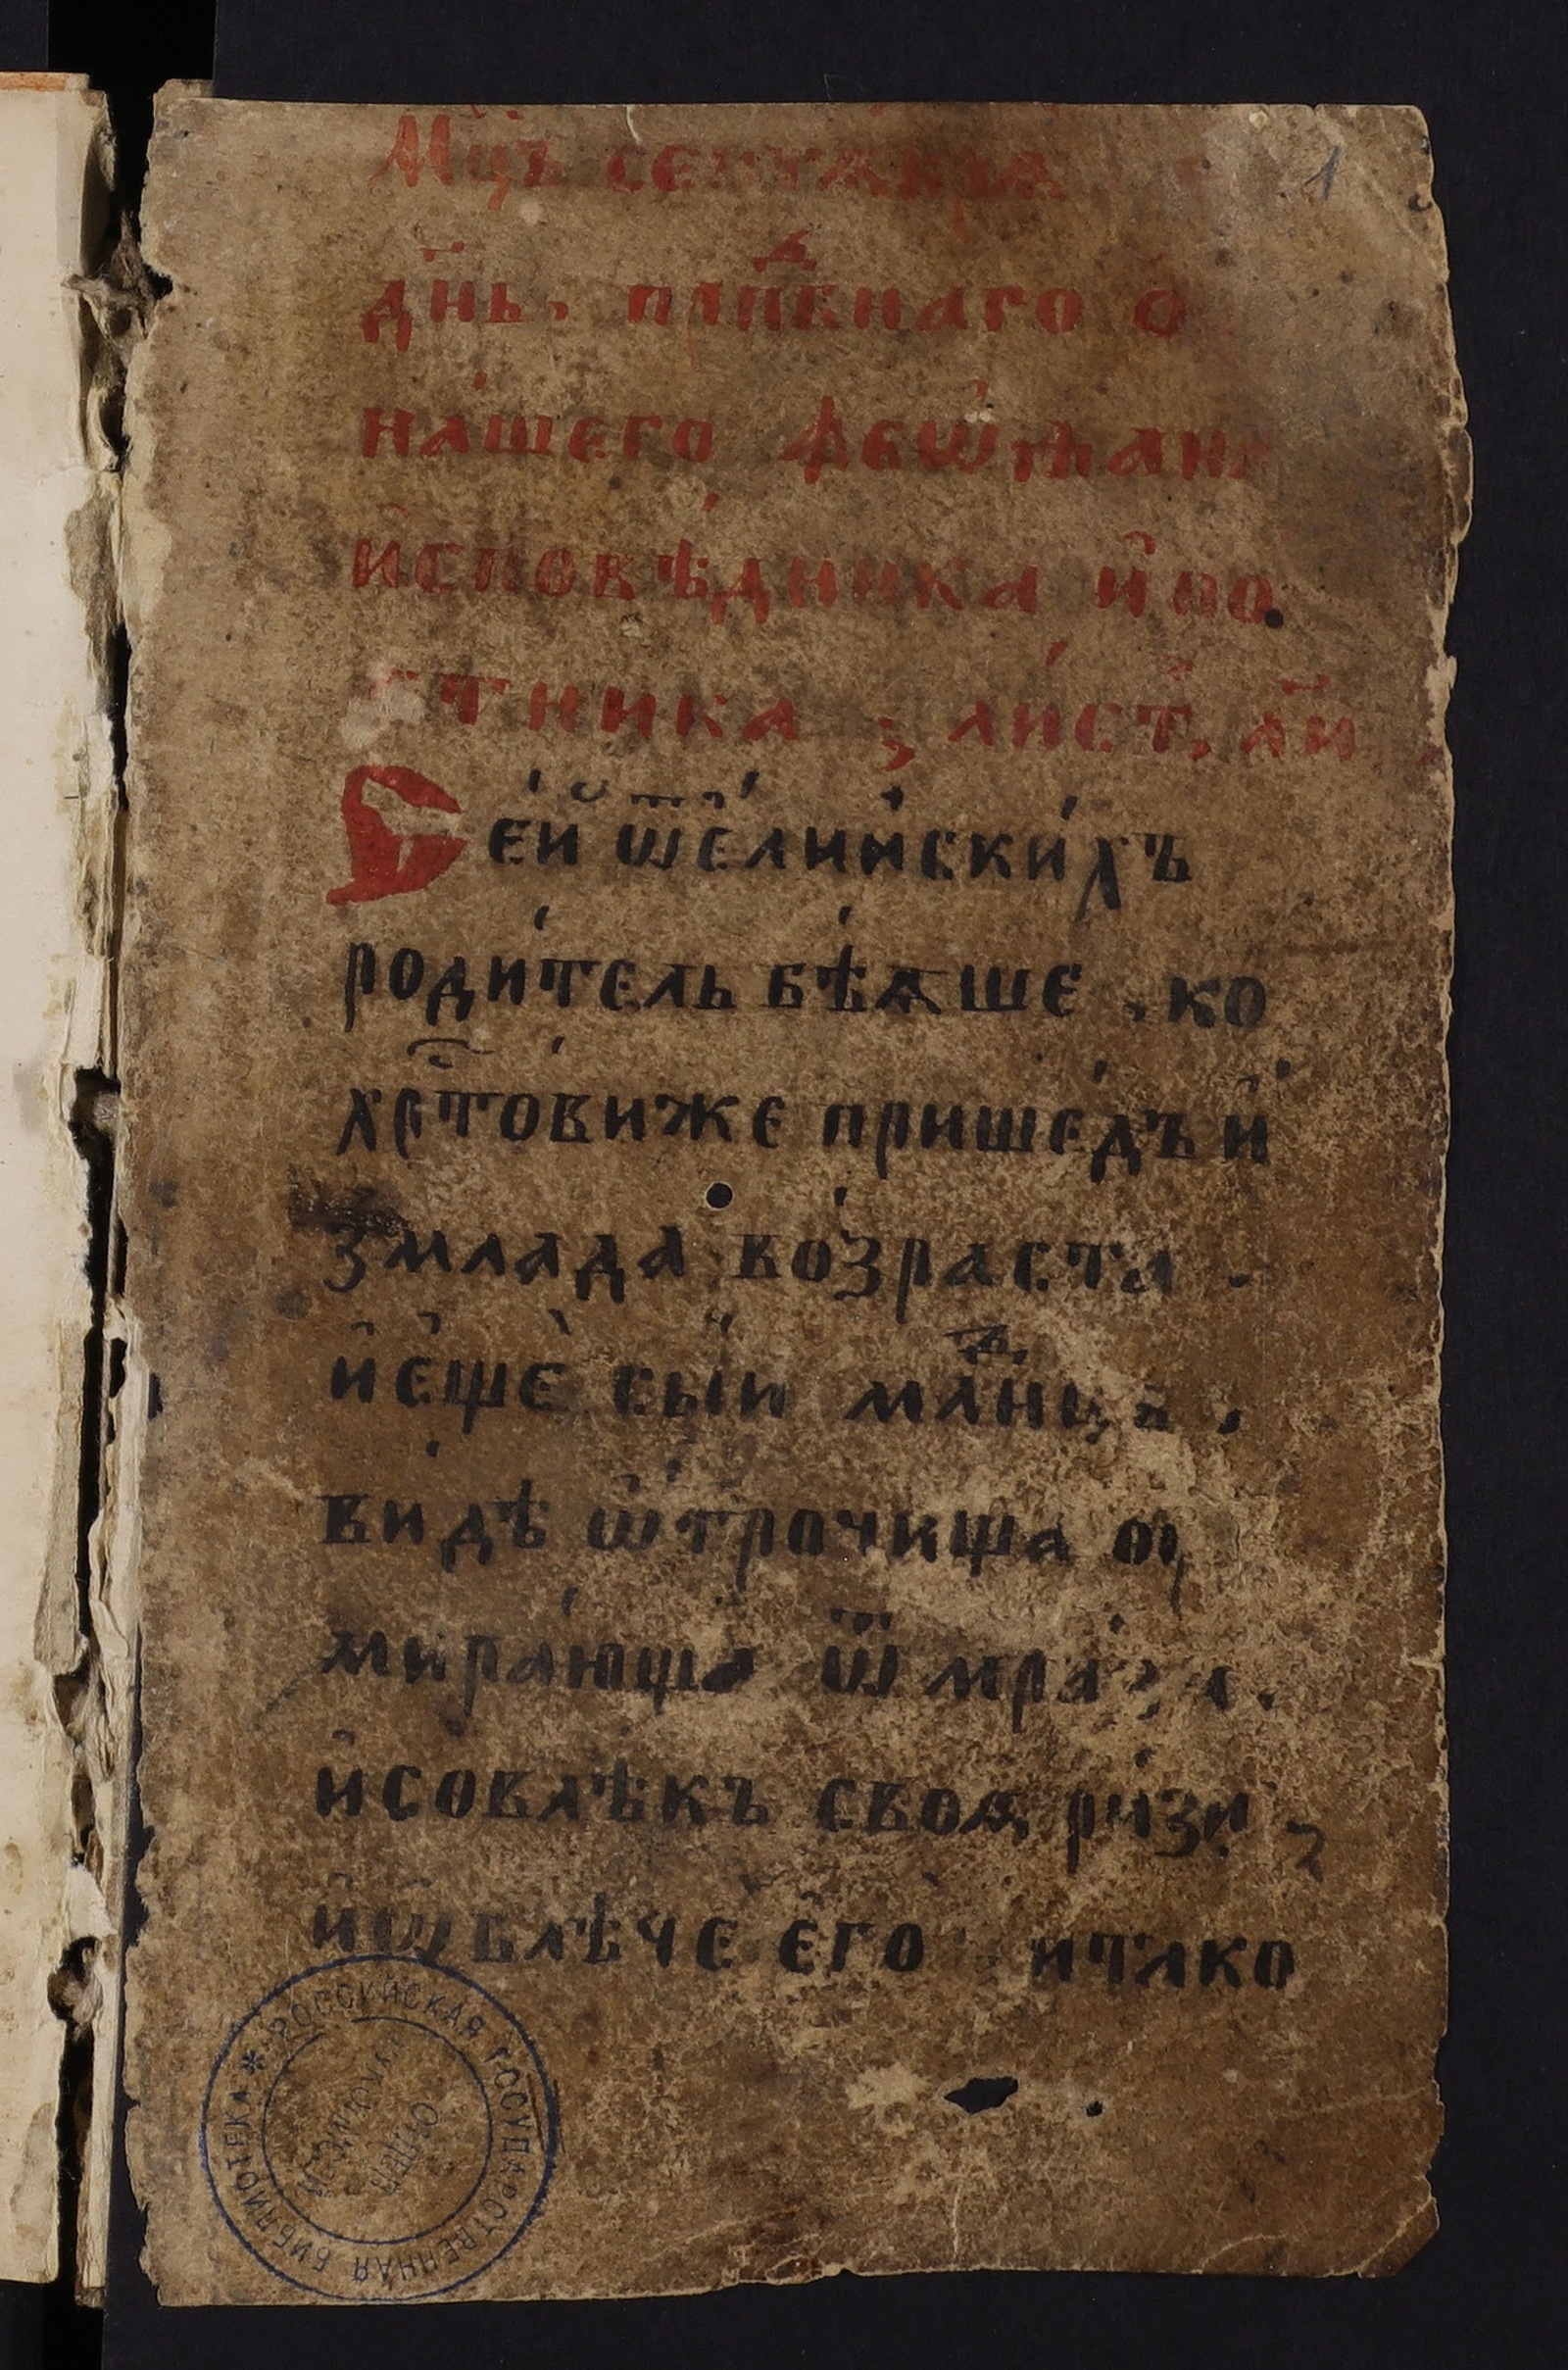 Мц҃ъ сентѧбрѧ 1
дн҃ь, прпⷣбнаго о
нашего феѡфана
и҆сповѣ́дника и҆ по
стника , ли́ст, л҃и
Се́й ѿ є҆ли́нски́хъ
роди́тель бѣ́ѧше , ко
хрⷭ҇то́ви же прише́дъ и҆
змлада во́зраста .
и҆ є҆щѐ сы́и млⷣнцъ ,
ви́дѣ ѿтрочища оу
мира́юща ѿ мра́за .
и҆ совлѣкъ своѧ ри́зи ,
и҆ ѡ҆блѣче є҆го̀ . и тако
РОССИЙСКАЯ ГОСУДАРСТВЕННАЯ БИБЛИОТЕКА *
ОТДЕЛ
РУКОПИСЕЙ